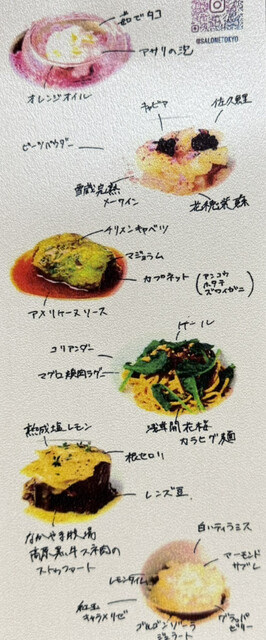 @SALONETOKYO
茹でタコ
アサリの泡
オレンジオイル
キャビア
佐久鯉
ビーツパウダー
雪蔵完熟
メークイン
花穂紫蘇
チリメンキャベツ
マジョラム
カプネット
(アンコウ
ホタテ
ズワイガニ)
アメリケーヌソース
ケール
コリアンダー
マグロ頬肉ラグー
浅草開化楼
カラヒグ麺
熟成塩レモン
根セロリ
レンズ豆
なかやま牧場
高原黒牛スネ肉の
ストゥファート
白いティラミス
アーモンド
サブレ
レモンタイム
紅玉
キャラメリゼ
ゴルゴンゾーラ
ジェラート
グラッパ
ゼリー